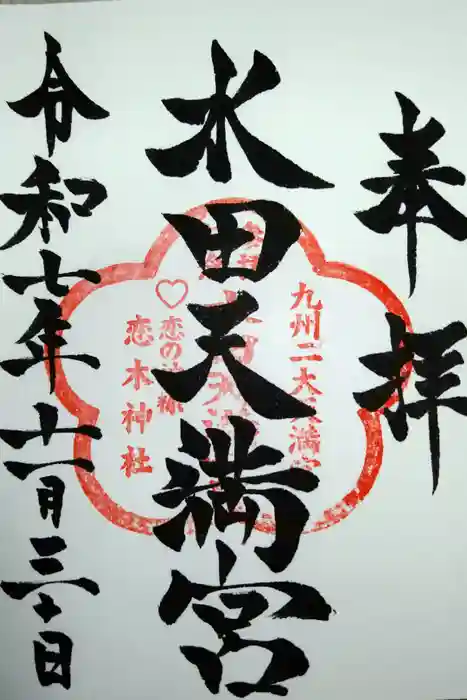 奉拝
水田天満宮
令和七年十一月三十日
九州二大天満宮
♡恋の神様
恋木神社